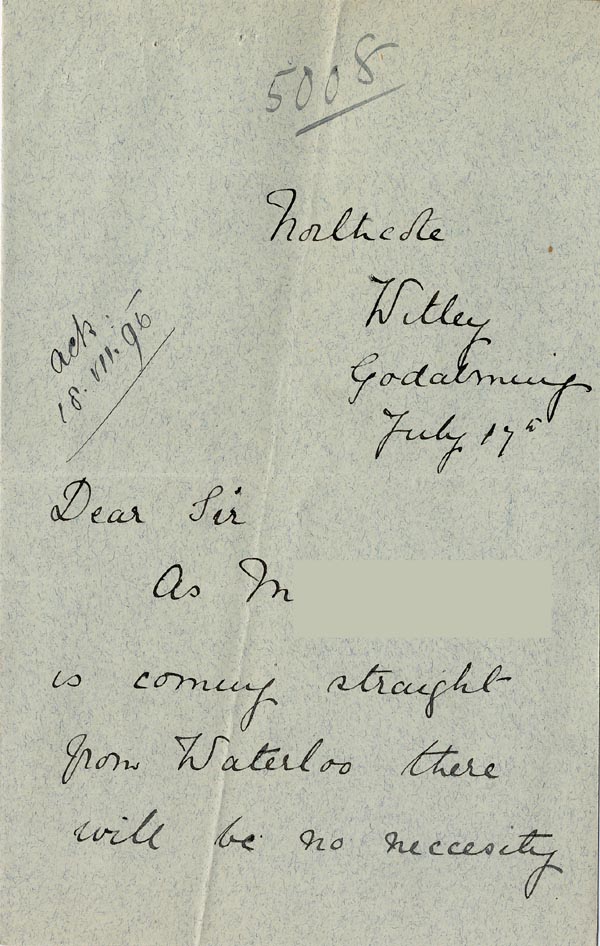 5008
Northcote
Witley
Godalming
July 17th
ack:
18.VII.96
Dear Sir
As M
is coming straight
from Waterloo there
will be no neccesity